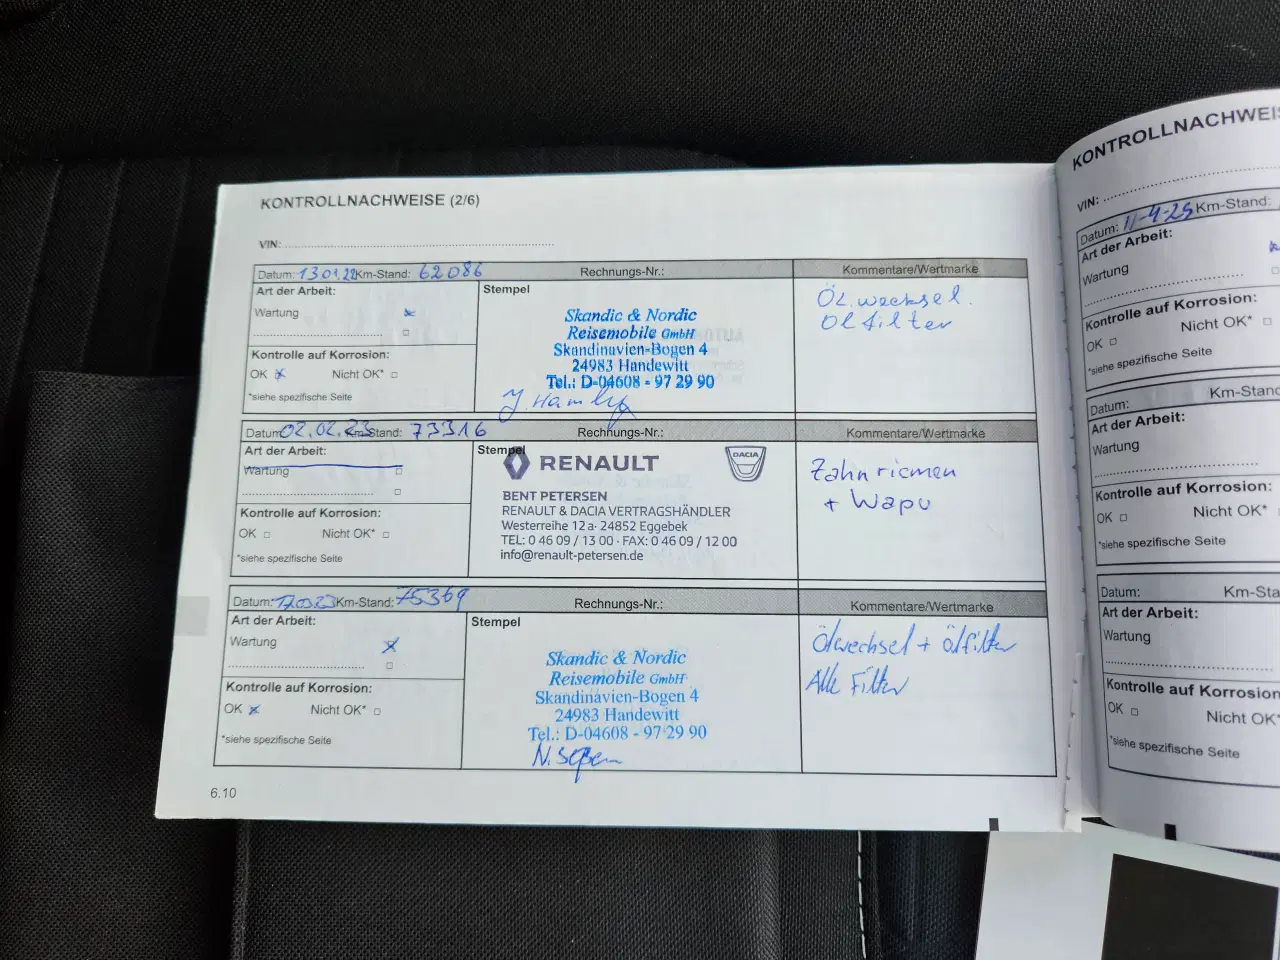 KONTROLLNACHWEISE (2/6)
VIN:
Datum: 13.01.22 Km-Stand: 62086 Rechnungs-Nr.: Kommentare/Wertmarke
Art der Arbeit: Stempel
Wartung
Kontrolle auf Korrosion:
OK Nicht OK*
*siehe spezifische Seite
Skandic & Nordic
Reisemobile GmbH
Skandinavien-Bogen 4
24983 Handewitt
Tel.: D-04608 - 97 29 90
Öl.wechsel.
Ölfilter
Datum: 02.02.23 Km-Stand: 73316 Rechnungs-Nr.: Kommentare/Wertmarke
Art der Arbeit: Stempel
Wartung
Kontrolle auf Korrosion:
OK Nicht OK*
*siehe spezifische Seite
RENAULT DACIA
BENT PETERSEN
RENAULT & DACIA VERTRAGSHÄNDLER
Westerreihe 12 a · 24852 Eggebek
TEL: 0 46 09 / 13 00 · FAX: 0 46 09 / 12 00
info@renault-petersen.de
Zahnriemen
+ Wapu
Datum: 17.03.23 Km-Stand: 75369 Rechnungs-Nr.: Kommentare/Wertmarke
Art der Arbeit: Stempel
Wartung
Kontrolle auf Korrosion:
OK Nicht OK*
*siehe spezifische Seite
Skandic & Nordic
Reisemobile GmbH
Skandinavien-Bogen 4
24983 Handewitt
Tel.: D-04608 - 97 29 90
Ölwechsel + Ölfilter
Alle Filter
6.10
KONTROLLNACHWEIS
VIN:
Datum: 11-4-25 Km-Stand:
Art der Arbeit:
Wartung
Kontrolle auf Korrosion:
OK Nicht OK*
*siehe spezifische Seite
Datum: Km-Stand
Art der Arbeit:
Wartung
Kontrolle auf Korrosion:
OK Nicht OK*
*siehe spezifische Seite
Datum: Km-Sta
Art der Arbeit:
Wartung
Kontrolle auf Korrosion
OK Nicht OK*
*siehe spezifische Seite